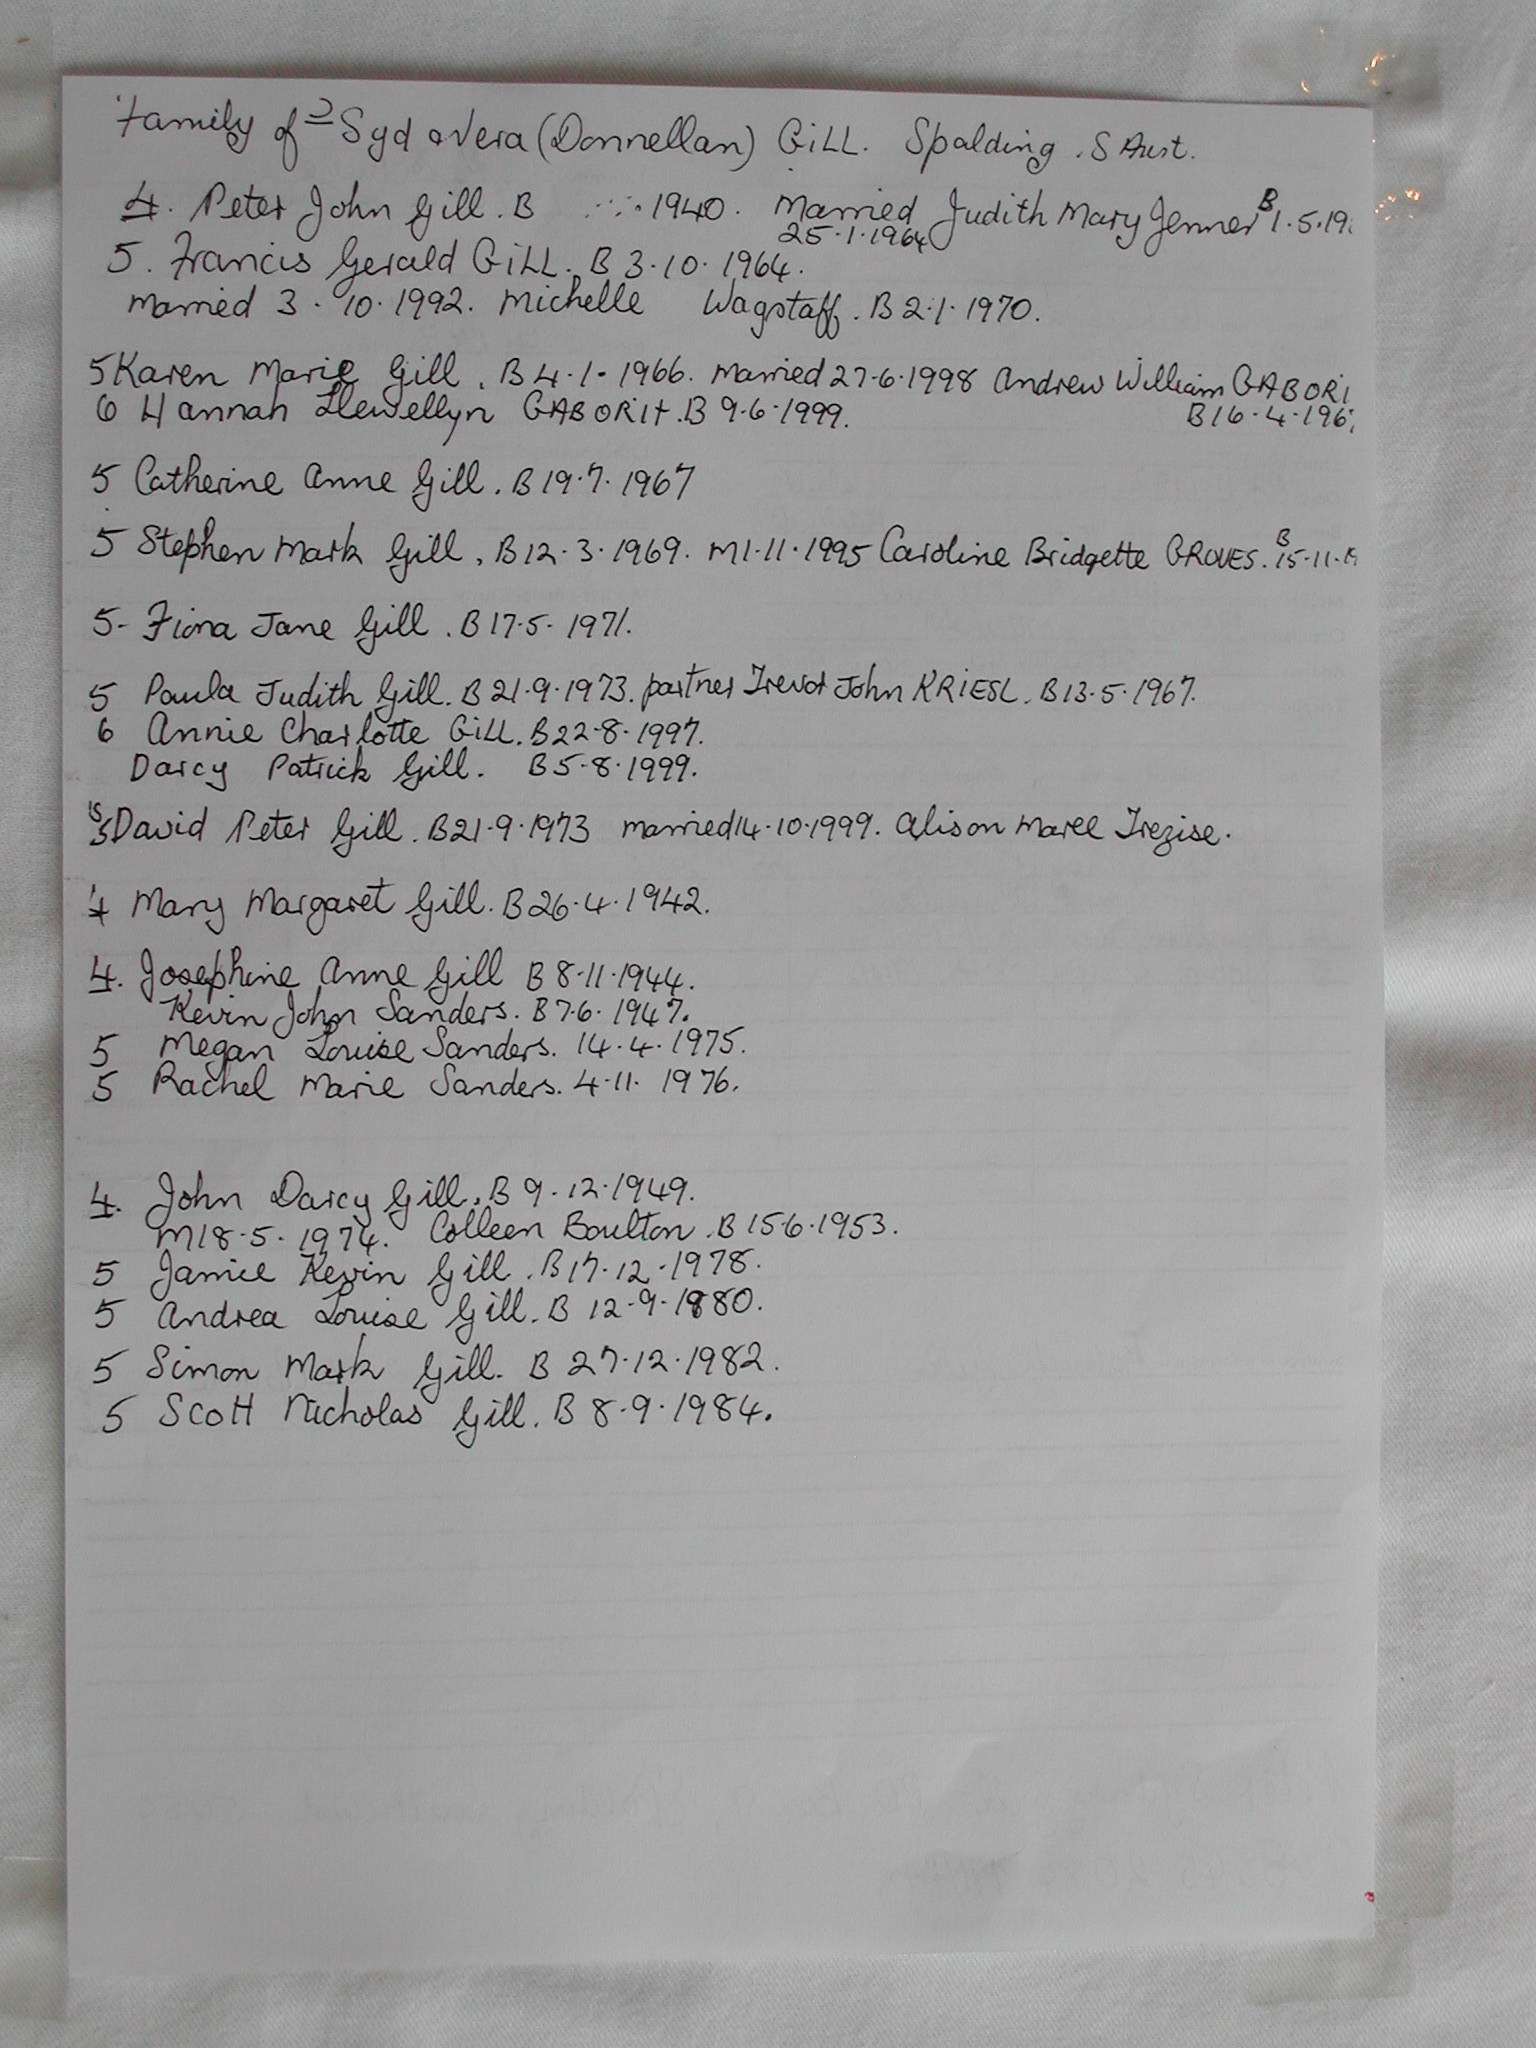 Family of 3 Syd & Vera (Donnellan) GiLL. Spalding . S Aust.
4. Peter John Gill. B 1940. Married Judith Mary Jenner B 1.5.19
25.1.1964
5. Francis Gerald GiLL. B 3.10.1964.
Married 3.10.1992. Michelle Wagstaff. B 2.1.1970.
5 Karen Marie Gill. B 4.1.1966. Married 27.6.1998 Andrew William GABORI
6 Hannah Llewellyn GABORIt. B 9.6.1999. B 16.4.196
5 Catherine Anne Gill. B 19.7.1967
5 Stephen Mark Gill. B 12.3.1969. M 1.11.1995 Caroline Bridgette GROVES. B 15.11.19
5- Fiona Jane Gill. B 17.5.1971.
5 Paula Judith Gill. B 21.9.1973. partner Trevor John KRIESL. B 13.5.1967.
6 Annie Charlotte GiLL. B 22.8.1997.
Darcy Patrick Gill. B 5.8.1999.
5 David Peter Gill. B 21.9.1973 married 14.10.1999. Alison Maree Trezise.
4 Mary Margaret Gill. B 26.4.1942.
4. Josephine Anne Gill B 8.11.1944.
Kevin John Sanders. B 7.6.1947.
5 Megan Louise Sanders. 14.4.1975.
5 Rachel Marie Sanders. 4.11.1976.
4. John Darcy Gill. B 9.12.1949.
M 18.5.1974. Colleen Boulton. B 15.6.1953.
5 Jamie Kevin Gill. B 17.12.1978.
5 Andrea Louise Gill. B 12.9.1980.
5 Simon Mark Gill. B 27.12.1982.
5 Scott Nicholas Gill. B 8.9.1984.